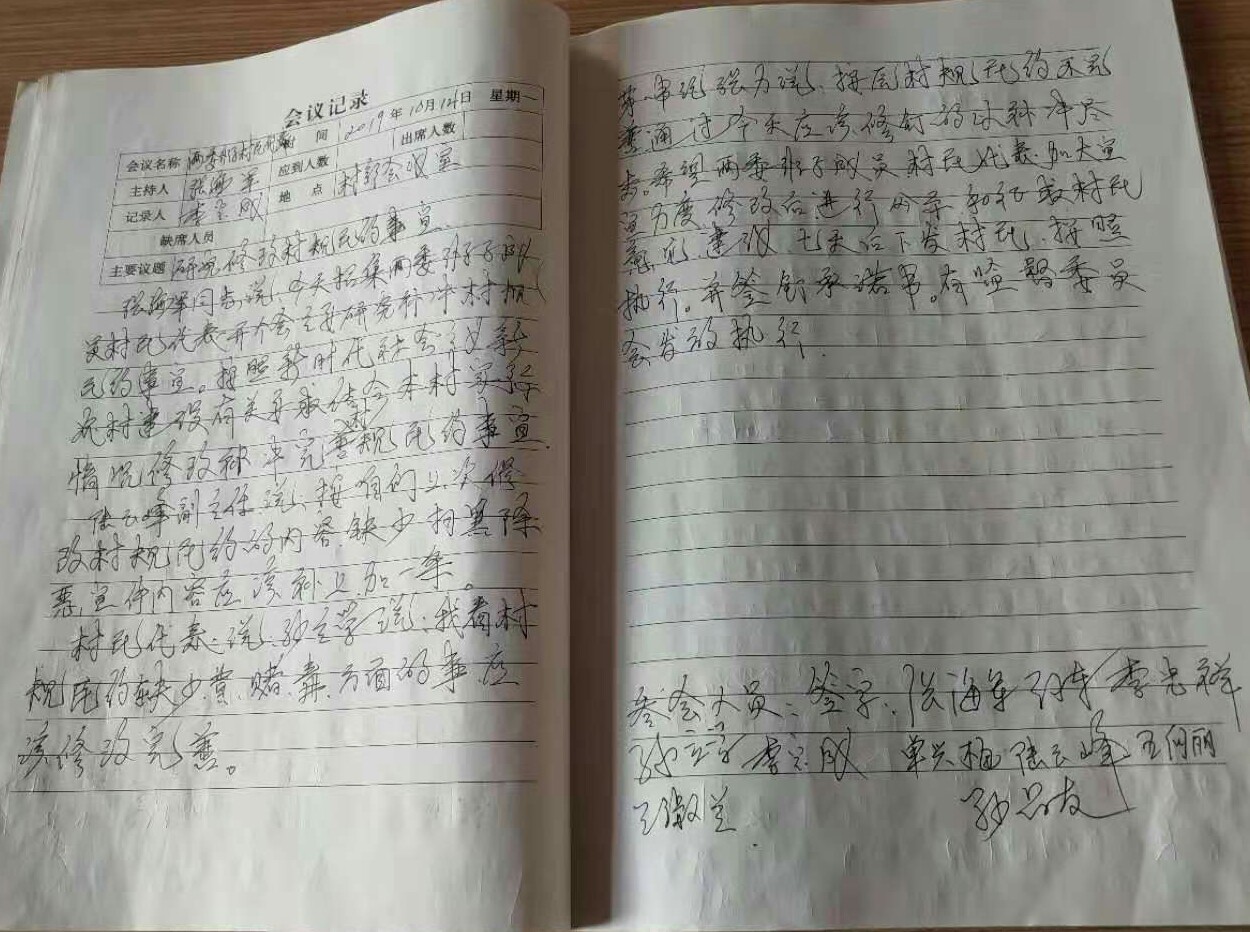 会议记录
会议名称 两委班子村民代表 时间 2019年10月14日 星期一
主持人 张海军 应到人数 出席人数
记录人 李立成 地点 村部会议室
缺席人员
主要议题 研究修改村规民约事宜
张海军同志说,今天招集两委班子成
员村民代表开个会主要研究补冲村规
民约事宜。按照新时代社会主义新
农村建设有关要求结合本村实际
情况修改补冲完善村规民约事宜
陆云峰副主任说,按咱们上次修
改村规民约的内容缺少扫黑除
恶宣传内容应该补上加一条。
村民代表:说,孙立学说:我看村
规民约缺少黄.赌.毒.方面的事.应
该修改完善。
说.按原村规民约不完
善通过今天应该修订的以补冲尽
希望两委班子成员村民代表加大宣
力度修改后进行公示和征取村民
意见.建议七天后下发村民.按照
执行。并签订承诺书。有监督委员
会发放执行.
参会人员:签字:张海军 李忠祥
孙立学 李立成 单兴相 陆云峰 王向丽
王淑兰